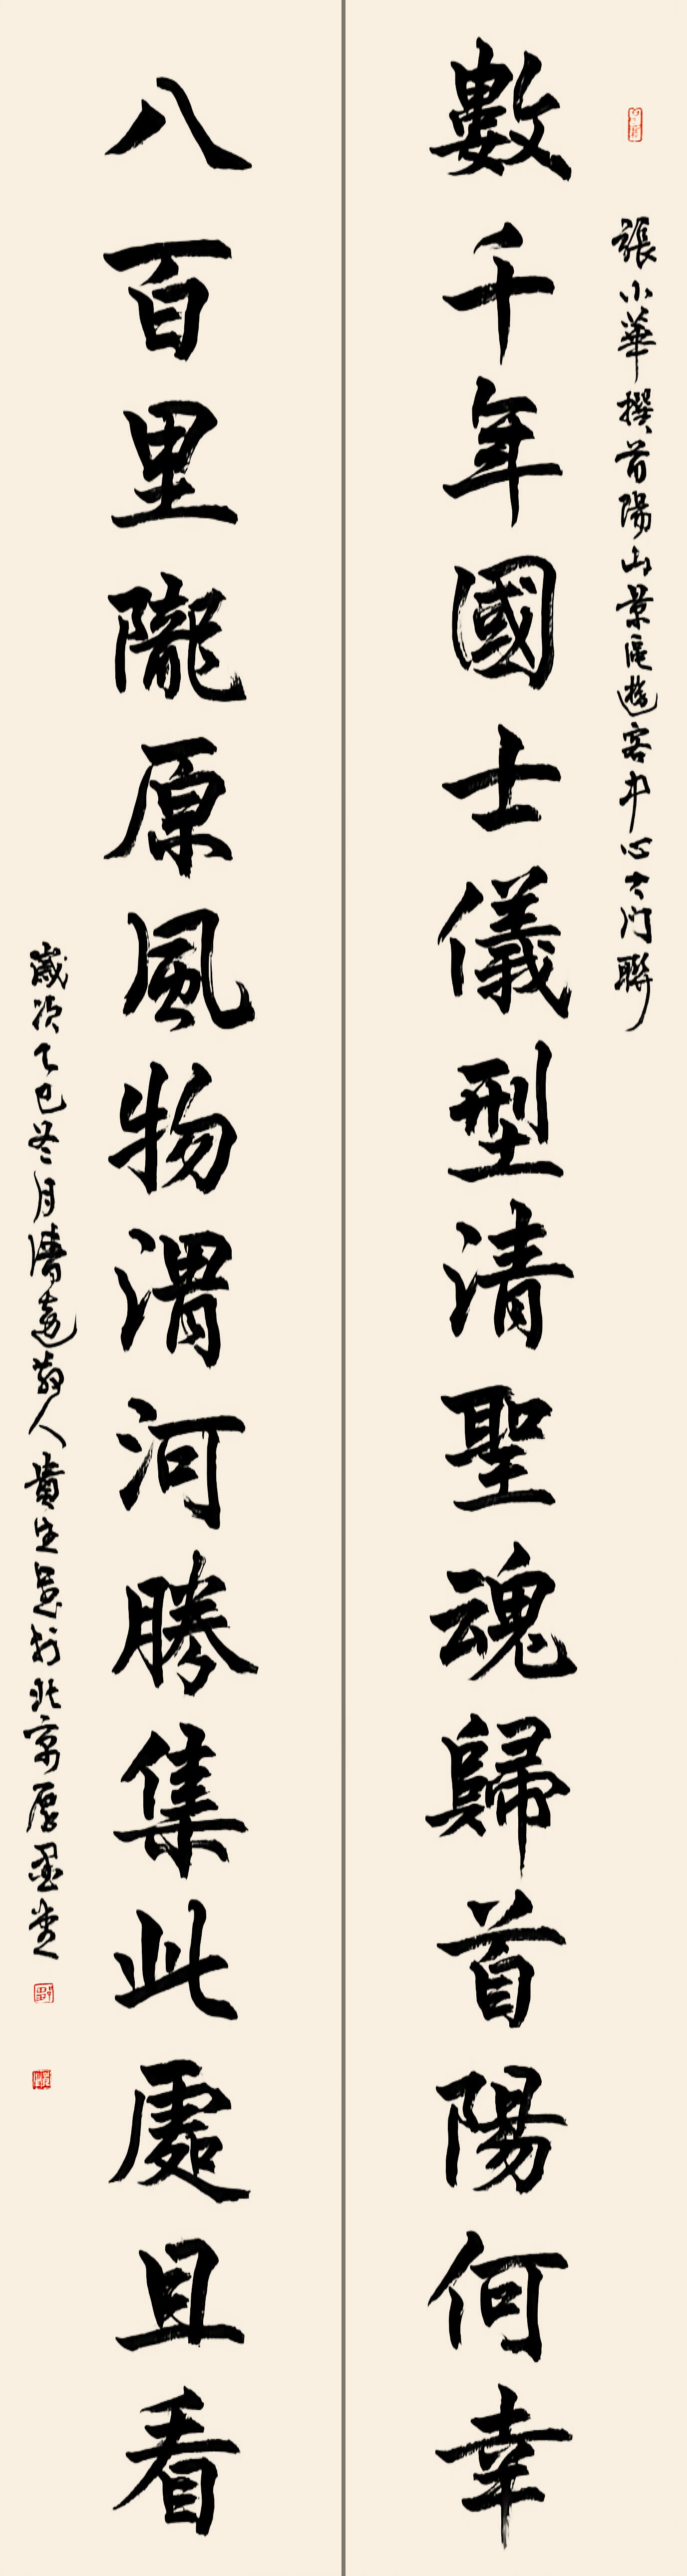 張小華撰首陽山景區遊客中心大門聯
數千年國士儀型清聖魂歸首陽何幸
八百里隴原風物渭河勝集此處且看
歲次乙巳冬月濟遠散人貴生書於北京厚墨堂